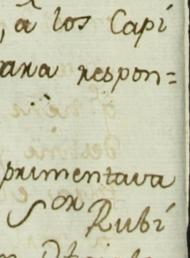 , á los Capi
ara respon=
primentava
Son Rubí